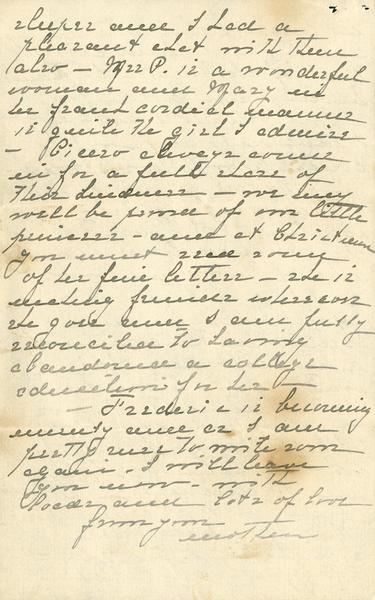 sleeper and I had a
pleasant chat with them
also – Mrs P. is a wonderful
woman and Mary in
her frank cordial manner
is quite the girl I admire
– Cicero always comes
in for a full share of
their kindness – we may
well be proud of our little
princess – and at Christmas
you must read some
of her fine letters – she is
making friends wherever
she goes and I am fully
reconciled to having
abandoned a college
education for her –
– Frederic is becoming
and as I am
to
again – I will leave
you now – with
and lots of love
from your
mother